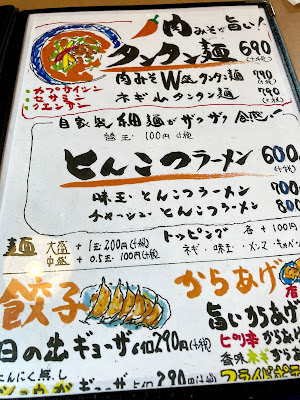 肉みそが旨い!
タンタン麺 690
(+税)
カプサイシン
セサミン
肉みそW盛タンタン麺 790
(+税)
ネギ山タンタン麺 790
(+税)
自家製細麺がザクザク
替玉 100円+税
とんこつラーメン 600
(+税)
味玉とんこつラーメン 700
チャーシューとんこつラーメン 800
トッピング 各+100円
ネギ・味玉・メンマ・チャーシュー
麺 大盛 +1玉 200円(+税)
中盛 +0.5玉 100円(+税)
餃子
からあげ
日の出ギョーザ 6コ290円(+税)
旨いからあげ
にんにく無し
ヒツ辛からあげ
香味ネギからあげ
ギョーザ 6コ290円(+税)
フライドポテト